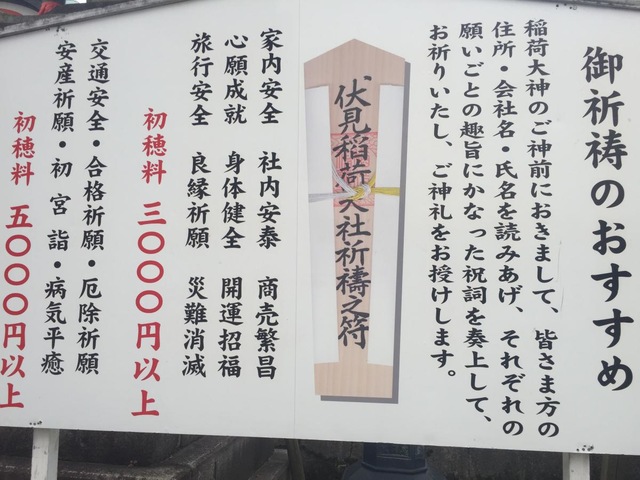 御祈祷のおすすめ
稲荷大神のご神前におきまして、皆さま方の
住所・会社名・氏名を読みあげ、それぞれの
願いごとの趣旨にかなった祝詞を奏上して、
お祈りいたし、ご神礼をお授けします。
伏見稲荷大社祈禱之符
家内安全 社内安泰 商売繁昌
心願成就 身体健全 開運招福
旅行安全 良縁祈願 災難消滅
初穂料 三〇〇〇円以上
交通安全・合格祈願・厄除祈願
安産祈願・初宮詣・病気平癒
初穂料 五〇〇〇円以上